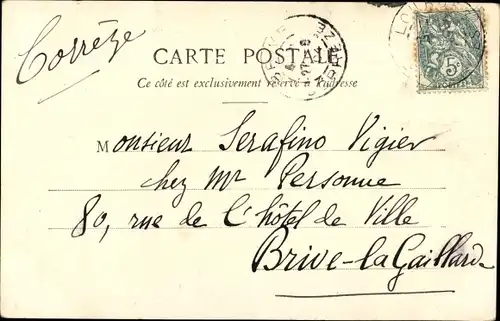 Corrèze
CARTE POSTALE
Ce côté est exclusivement réservé à l'adresse
Monsieur Serafino Vigier
chez Mr Personne
80, rue de l'hôtel de Ville
Brive-la-Gaillarde
5c
POSTES